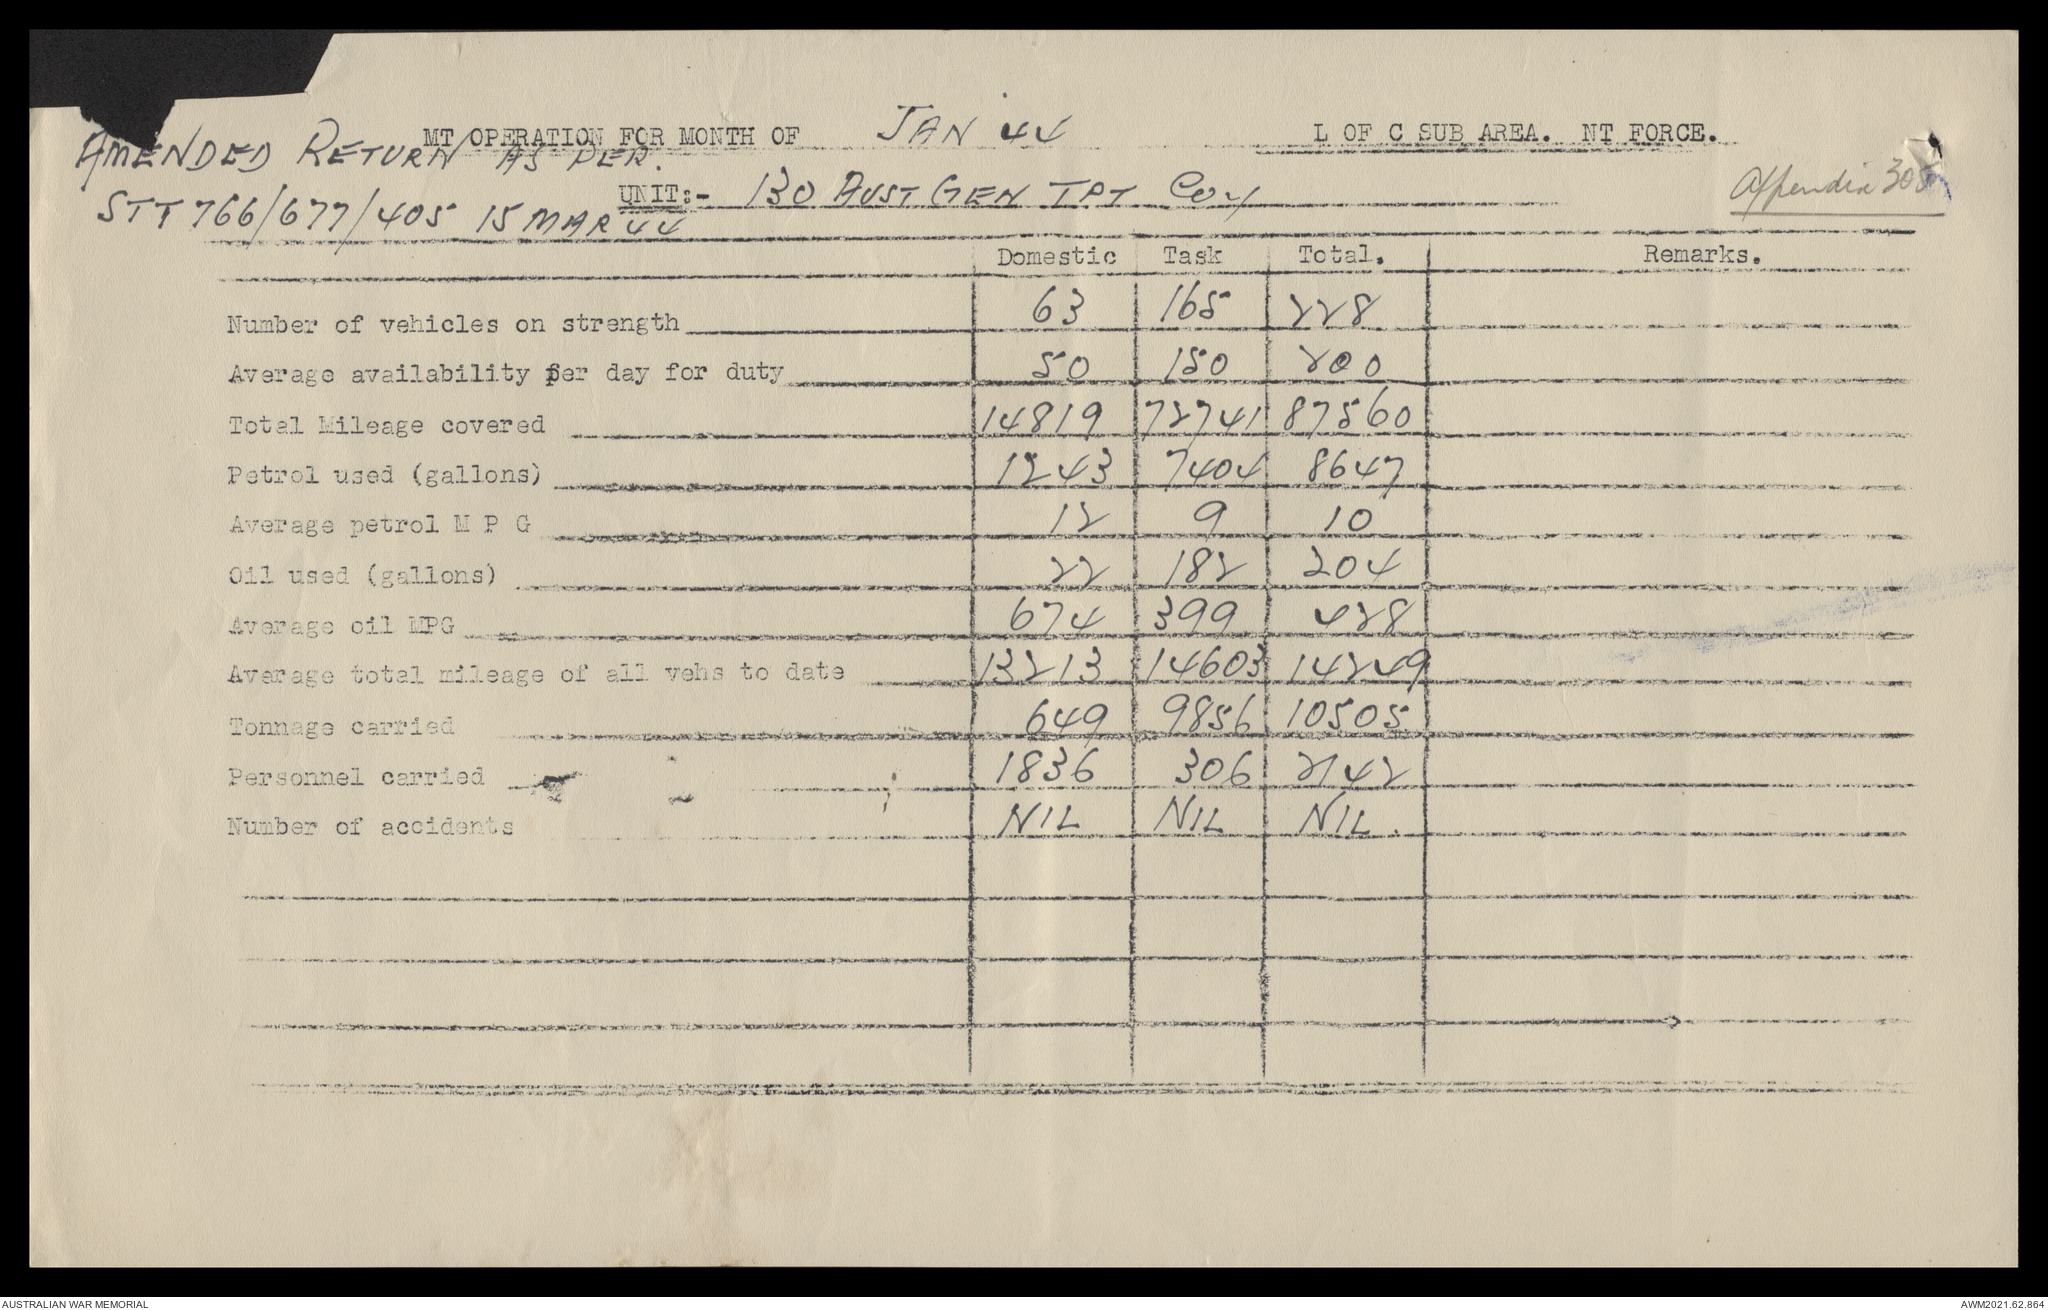 MT OPERATION FOR MONTH OF JAN 44 L OF C SUB AREA. NT FORCE.
AMENDED RETURN AS PER.
STT 766/677/405 15 MAR 44
UNIT:- 130 AUST GEN TPT Coy
Appendix 308
Domestic Task Total. Remarks.
Number of vehicles on strength 63 165 228
Average availability per day for duty 50 150 200
Total Mileage covered 14819 72741 87560
Petrol used (gallons) 1243 7404 8647
Average petrol M P G 12 9 10
Oil used (gallons) 22 182 204
Average oil MPG 674 399 428
Average total mileage of all vehs to date 13213 14603 14249
Tonnage carried 649 9856 10505
Personnel carried 1836 306 2142
Number of accidents NIL NIL NIL.
AUSTRALIAN WAR MEMORIAL AWM2021.62.864